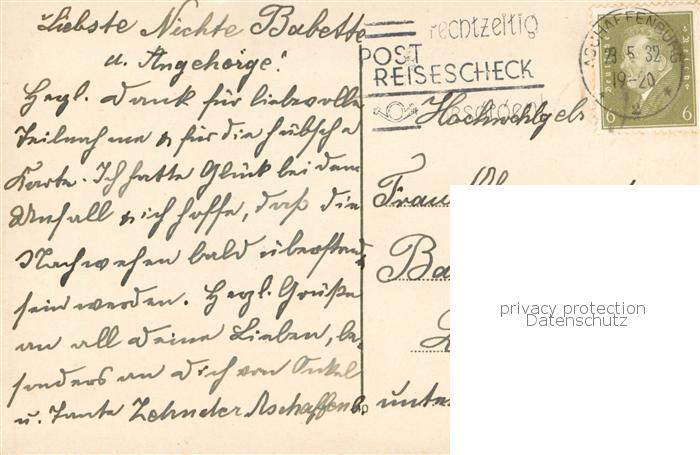 Liebste Nichte Babette
u. Angehörge!
Herzl. Dank für liebevolle
Teilnahme & für die hübsche
Karte. Ich hatte Glück bei dem
Unfall & ich hoffe, daß die
Nachwehen bald überstand.
sein werden. Herzl. Grüße
an all deine Lieben, be-
sonders an dich von Onkel
u. Tante Zehnder Aschaffenb.
rechtzeitig
POST
REISESCHECK
besorgen!
ASCHAFFENBURG
23.5.32
19-20
2
6 6
Hochwohlgeb.
Frau
Ba
unter
privacy protection
Datenschutz